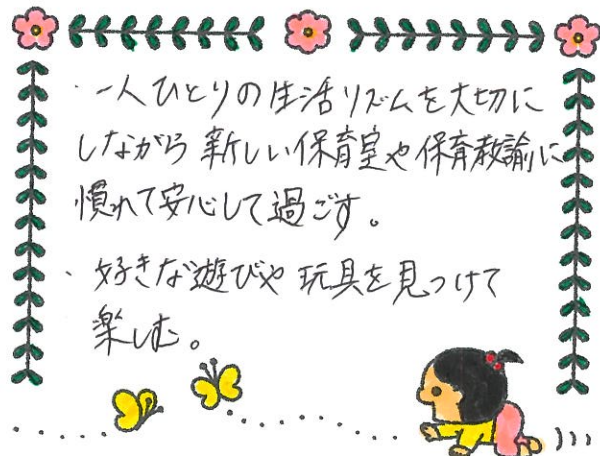 ・一人ひとりの生活リズムを大切に
しながら新しい保育室や保育教諭に
慣れて安心して過ごす。
・好きな遊びや玩具を見つけて
楽しむ。